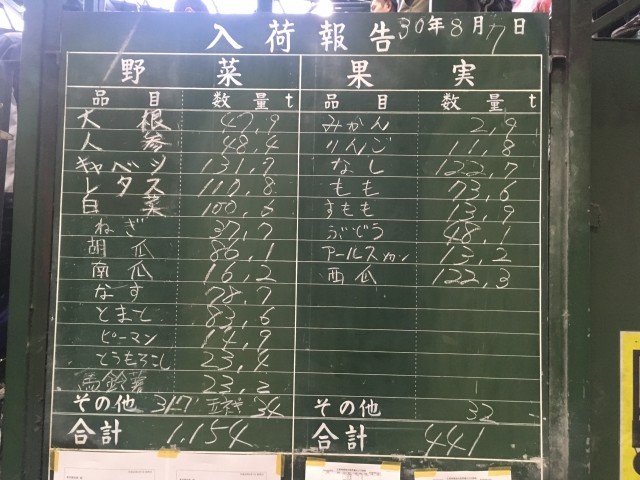 入荷報告 30年8月7日
野菜 果実
品目 数量 t 品目 数量 t
大根 47.9 みかん 2.9
人参 48.4 りんご 11.8
キャベツ 131.7 なし 122.7
レタス 110.8 もも 73.6
白菜 100.6 すもも 13.9
ねぎ 37.7 ぶどう 48.1
胡瓜 86.1 アールスメロン 13.2
南瓜 16.2 西瓜 122.3
なす 78.7
とまと 83.6
ピーマン 14.9
とうもろこし 23.4
馬鈴薯 23.2
その他 317 34 その他 32
合計 1,154 合計 441